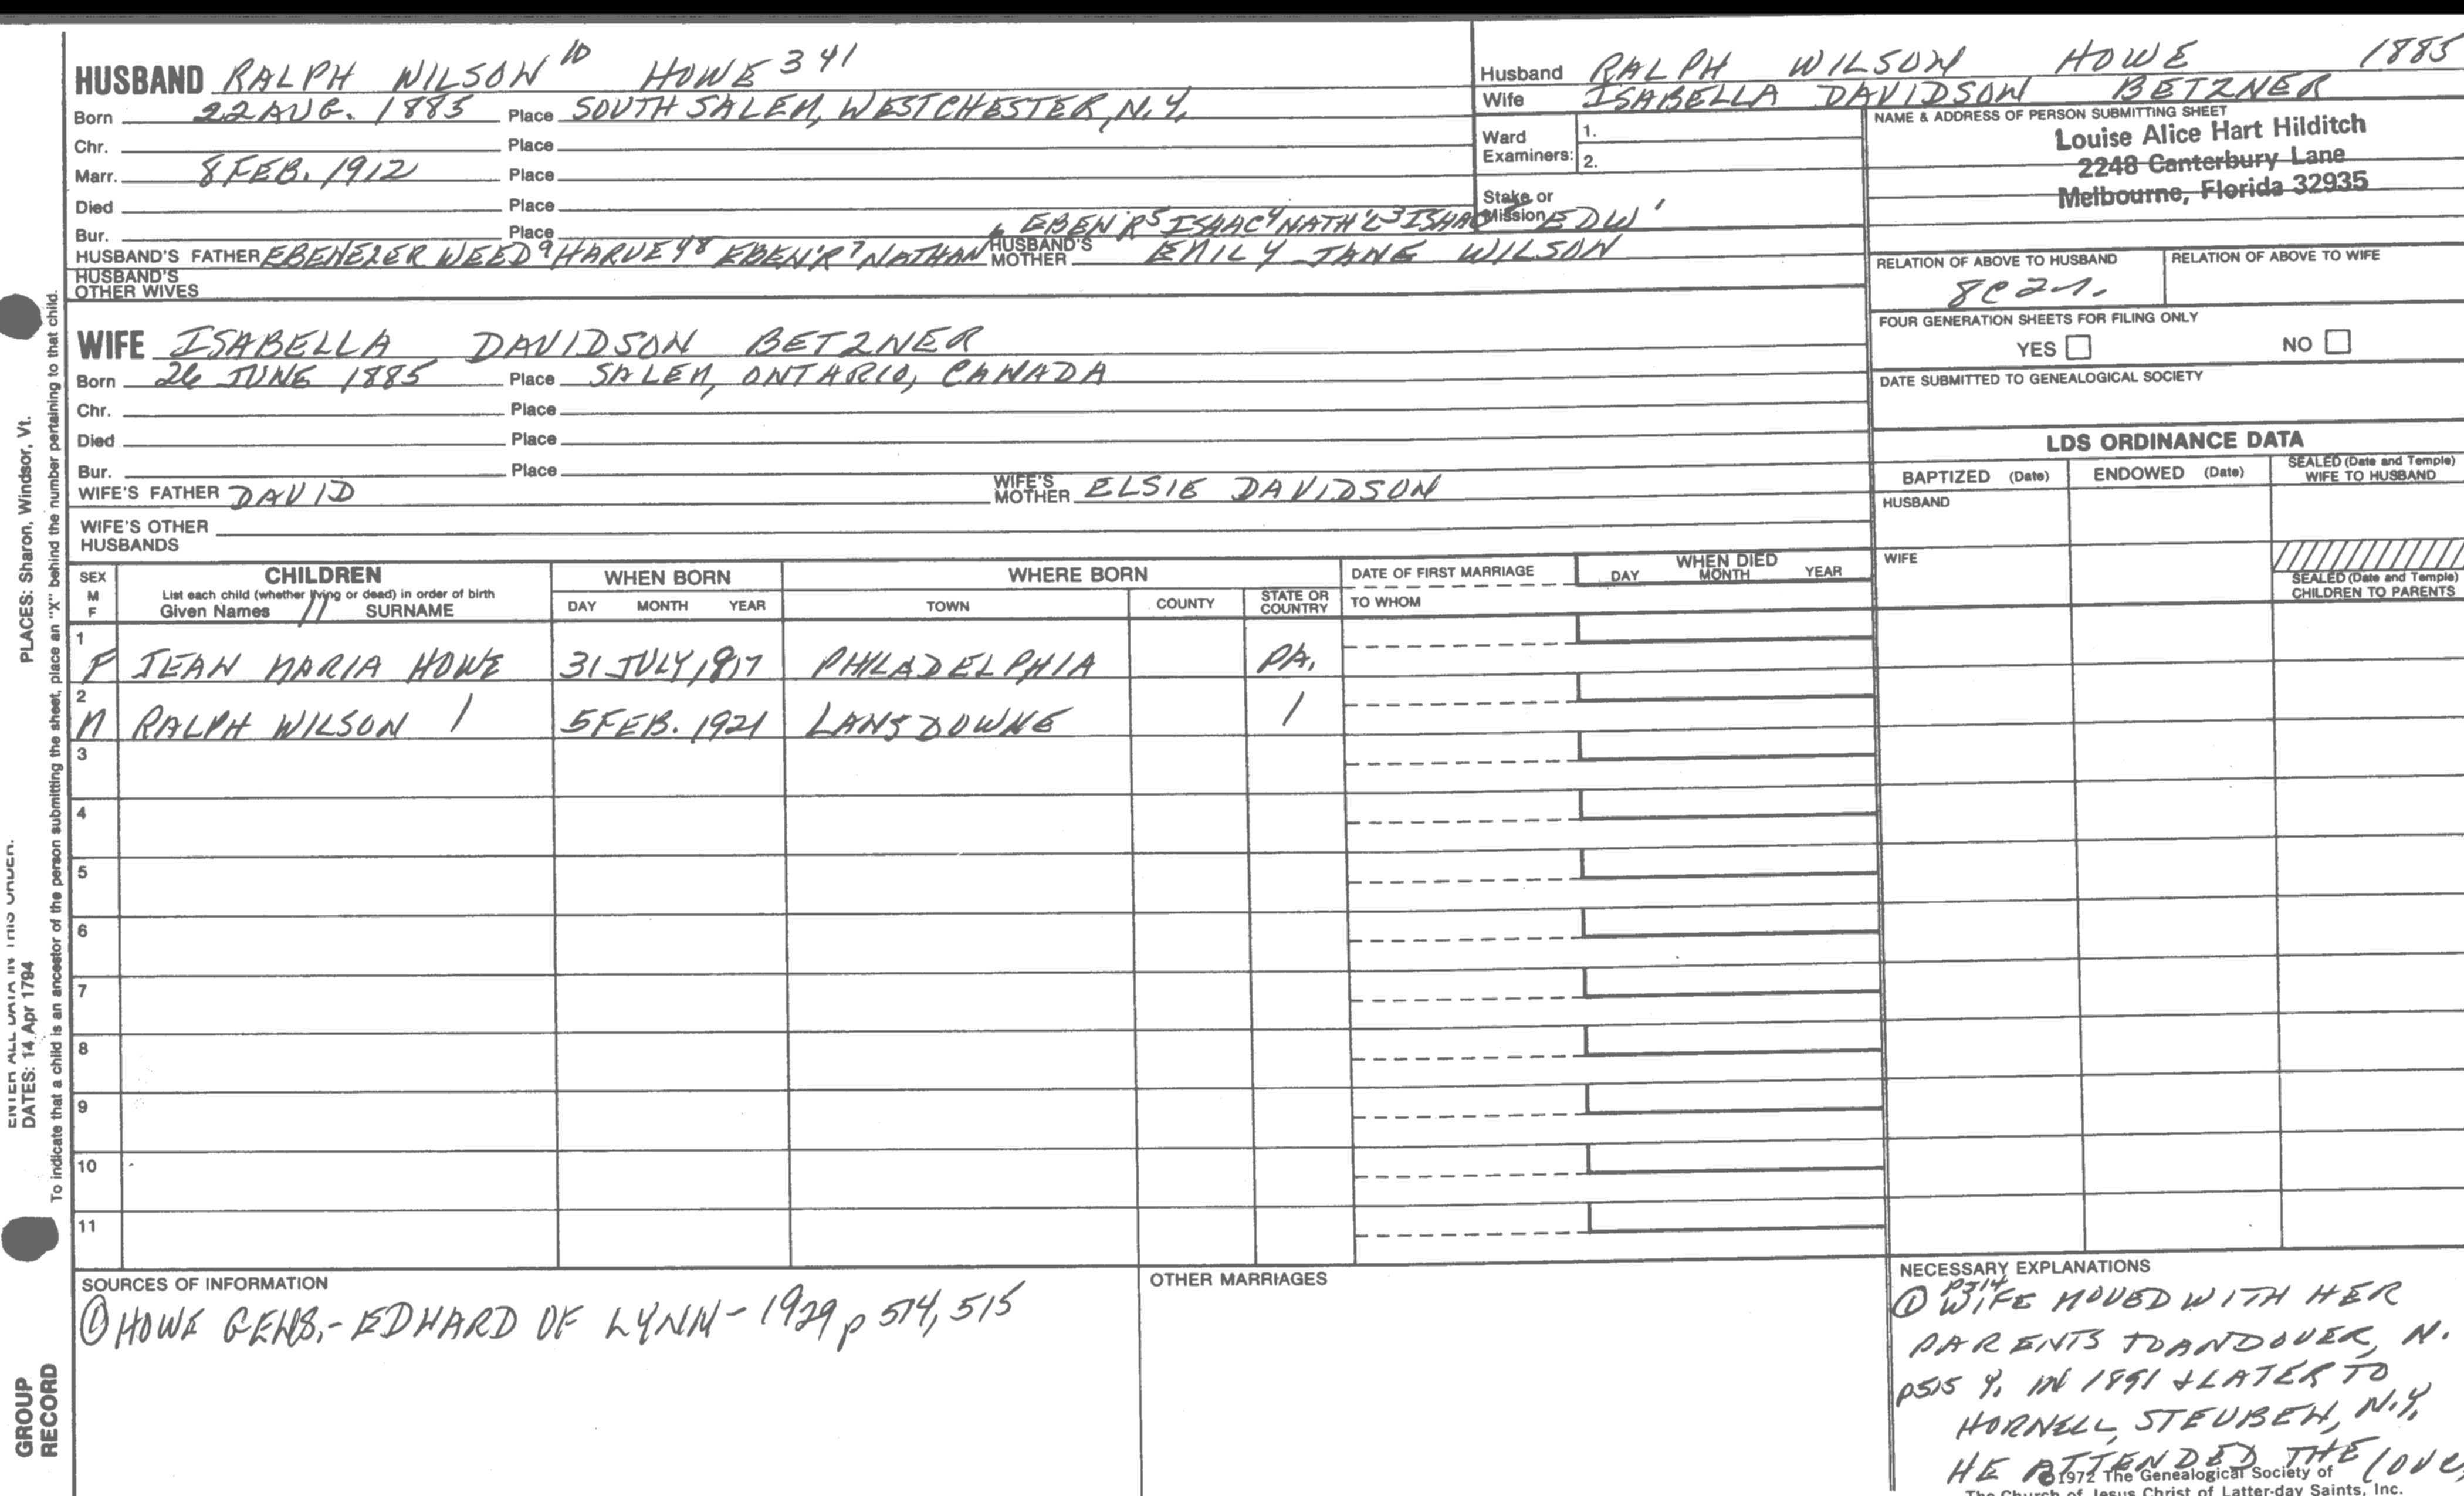 HUSBAND RALPH WILSON 10 HOWE 341
Born 22 AUG. 1885 Place SOUTH SALEM, WESTCHESTER, N.Y.
Chr. Place
Marr. 8 FEB. 1912 Place
Died Place
Bur. Place
6 EBEN'R 5 ISAAC 4 NATH'L 3 ISAAC 2 EDW 1
HUSBAND'S FATHER EBENEZER WEED 9 HARVEY 8 EBEN'R 7 NATHAN HUSBAND'S MOTHER EMILY JANE WILSON
HUSBAND'S OTHER WIVES
Husband RALPH WILSON HOWE 1885
Wife ISABELLA DAVIDSON BETZNER
Ward Examiners: 1.
2.
Stake or Mission
NAME & ADDRESS OF PERSON SUBMITTING SHEET
Louise Alice Hart Hilditch
2248 Canterbury Lane
Melbourne, Florida 32935
RELATION OF ABOVE TO HUSBAND RELATION OF ABOVE TO WIFE
8C2r.
FOUR GENERATION SHEETS FOR FILING ONLY
YES NO
DATE SUBMITTED TO GENEALOGICAL SOCIETY
WIFE ISABELLA DAVIDSON BETZNER
Born 26 JUNE 1885 Place SALEM, ONTARIO, CANADA
Chr. Place
Died Place
Bur. Place
WIFE'S FATHER DAVID WIFE'S MOTHER ELSIE DAVIDSON
WIFE'S OTHER HUSBANDS
LDS ORDINANCE DATA
BAPTIZED (Date) ENDOWED (Date) SEALED (Date and Temple) WIFE TO HUSBAND
HUSBAND
WIFE
SEALED (Date and Temple) CHILDREN TO PARENTS
SEX M F
CHILDREN
List each child (whether living or dead) in order of birth
Given Names // SURNAME
WHEN BORN
DAY MONTH YEAR
WHERE BORN
TOWN COUNTY STATE OR COUNTRY
DATE OF FIRST MARRIAGE
TO WHOM
WHEN DIED
DAY MONTH YEAR
1 F JEAN MARIA HOWE 31 JULY 1917 PHILADELPHIA PA.
2 M RALPH WILSON / 5 FEB. 1921 LANSDOWNE /
3
4
5
6
7
8
9
10
11
SOURCES OF INFORMATION
① HOWE GENS.- EDWARD OF LYNN - 1929 p 514, 515
OTHER MARRIAGES
NECESSARY EXPLANATIONS
p514
① WIFE MOVED WITH HER
PARENTS TO ANDOVER, N.
p515 Y. IN 1891 & LATER TO
HORNELL, STEUBEN, N.Y.
HE ATTENDED THE (OVE
©1972 The Genealogical Society of
The Church of Jesus Christ of Latter-day Saints, Inc.
PLACES: Sharon, Windsor, Vt.
ENTER ALL DATA IN THIS ORDER:
DATES: 14 Apr 1794
To indicate that a child is an ancestor of the person submitting the sheet, place an "X" behind the number pertaining to that child.
GROUP
RECORD